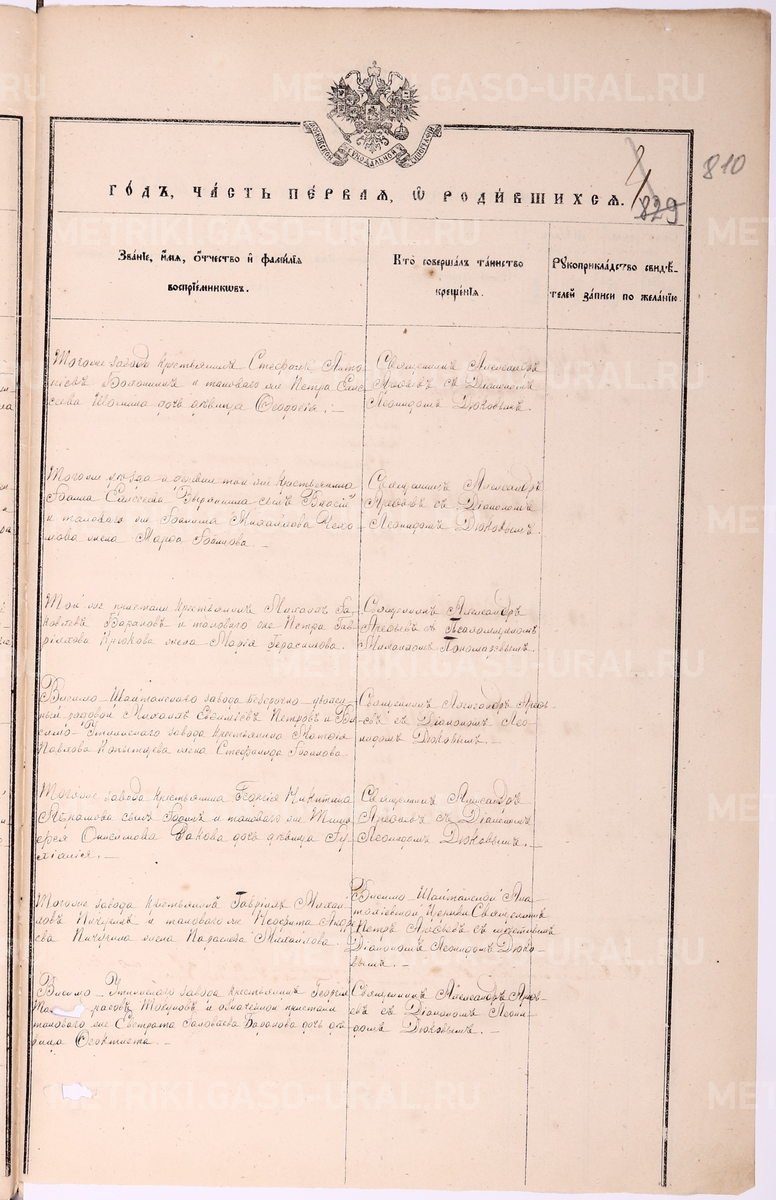 METRIKI.GASO-URAL.RU
МОСКОВСКОЙ СѴНОДАЛЬНОЙ ТИПОГРАФІИ
810
829
ГО́ДЪ, ЧА́СТЬ ПЕ́РВАЯ, Ѡ҆ РОДИ́ВШИХСЯ.
Зва́нїе, и҆́мя, ѻ҆́тчество и҆ фами́лїя
воспрїе́мникѡвъ.
Кто̀ соверша́лъ та́инство
креще́нїя.
Рꙋкоприкла́дство свидѣ́-
телей за́писи по жела́нїю.
Тогоже завода крестьянинъ Стефанъ Анто-
ніевъ и таковаго же Петра Елис-
сеева дочь дѣвица Ѳеодосія. –
Священникъ Александръ
Арефьевъ съ Діакономъ
Леонидомъ Дюковымъ.
Тогоже уѣзда и деревни той же крестьянина
Іоанна Елиссеева сынъ Власій
и таковаго же Іоанна Михайлова
жена Марѳа Іоаннова –
Священникъ Александръ
Арефьевъ съ Діакономъ
Леонидомъ Дюковымъ.
Той же пристани крестьянинъ Михаилъ Іа-
ковлевъ Барановъ и таковаго же Петра Гав-
рілова Крюкова жена Марія Герасимова.
Священникъ Александръ
Арефьевъ съ Псаломщикомъ
Пономаревымъ.
Висимо Шайтанскаго завода безсрочно уволен-
ный рядовой Михаилъ Евѳиміевъ Петровъ и Ви-
симо-Уткинскаго завода крестьянина
Павлова Копытцева жена Стефанида Іоаннова
Священникъ Александръ Арефь-
евъ съ Діакономъ Лео-
нидомъ Дюковымъ. –
Тогоже завода крестьянина Георгія Никитина
Абрамова сынъ Іоаннъ и таковаго же Тимо-
ѳея Онисимова дочь дѣвица Іу-
ліанія. –
Священникъ Александръ
Арефьевъ съ Діакономъ
Леонидомъ Дюковымъ. –
Тогоже завода крестьянинъ Гавріилъ Михаи-
ловъ Пичугинъ и таковаго же Неофита Андре-
ева Пичугина жена Параскева Михаилова.
Висимо Шайтанской Ана-
толіевской церкви Священникъ
Петръ Арефьевъ съ
Діакономъ Леонидомъ Дюко-
вымъ. –
Висимо Уткинскаго завода крестьянинъ Георгій
Токуновъ и означенной пристани
таковаго же Евстрата Баранова дочь дѣ-
вица Ѳеоктиста –
Священникъ Александръ Арефь-
евъ съ Діакономъ Леони-
домъ Дюковымъ. –